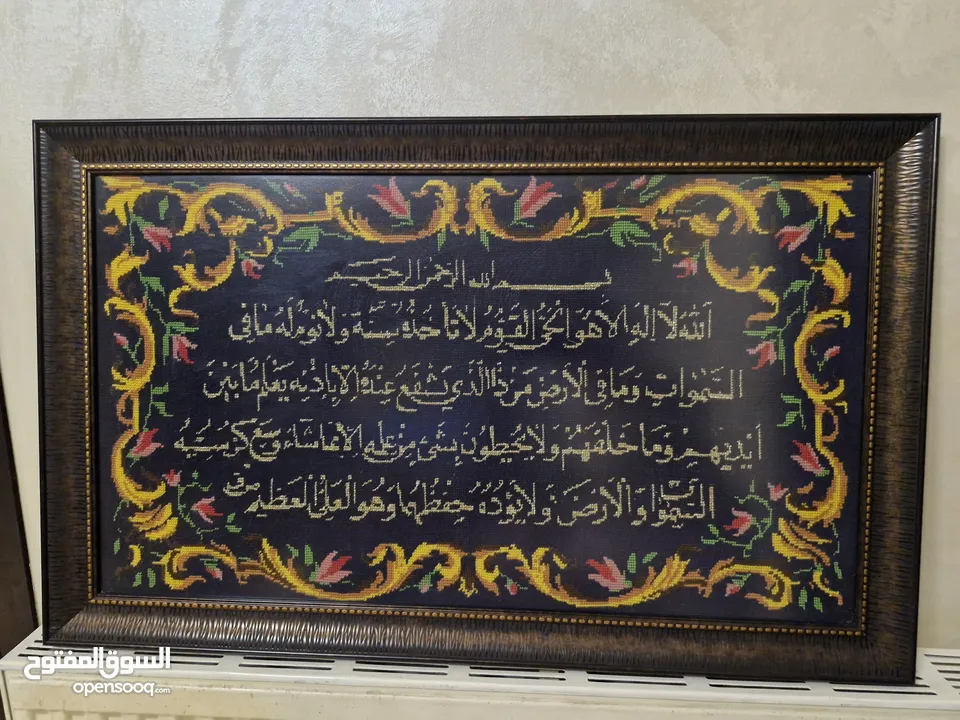 بسم الله الرحمن الرحيم
الله لا اله الا هو الحي القيوم لا تأخذه سنة ولا نوم له ما في
السموات وما في الأرض من ذا الذي يشفع عنده الا باذنه يعلم ما بين
ايديهم وما خلفهم ولا يحيطون بشئ من علمه الا بما شاء وسع كرسيه
السموات والأرض ولا يؤده حفظهما وهو العلي العظيم
السوق المفتوح
opensooq.com